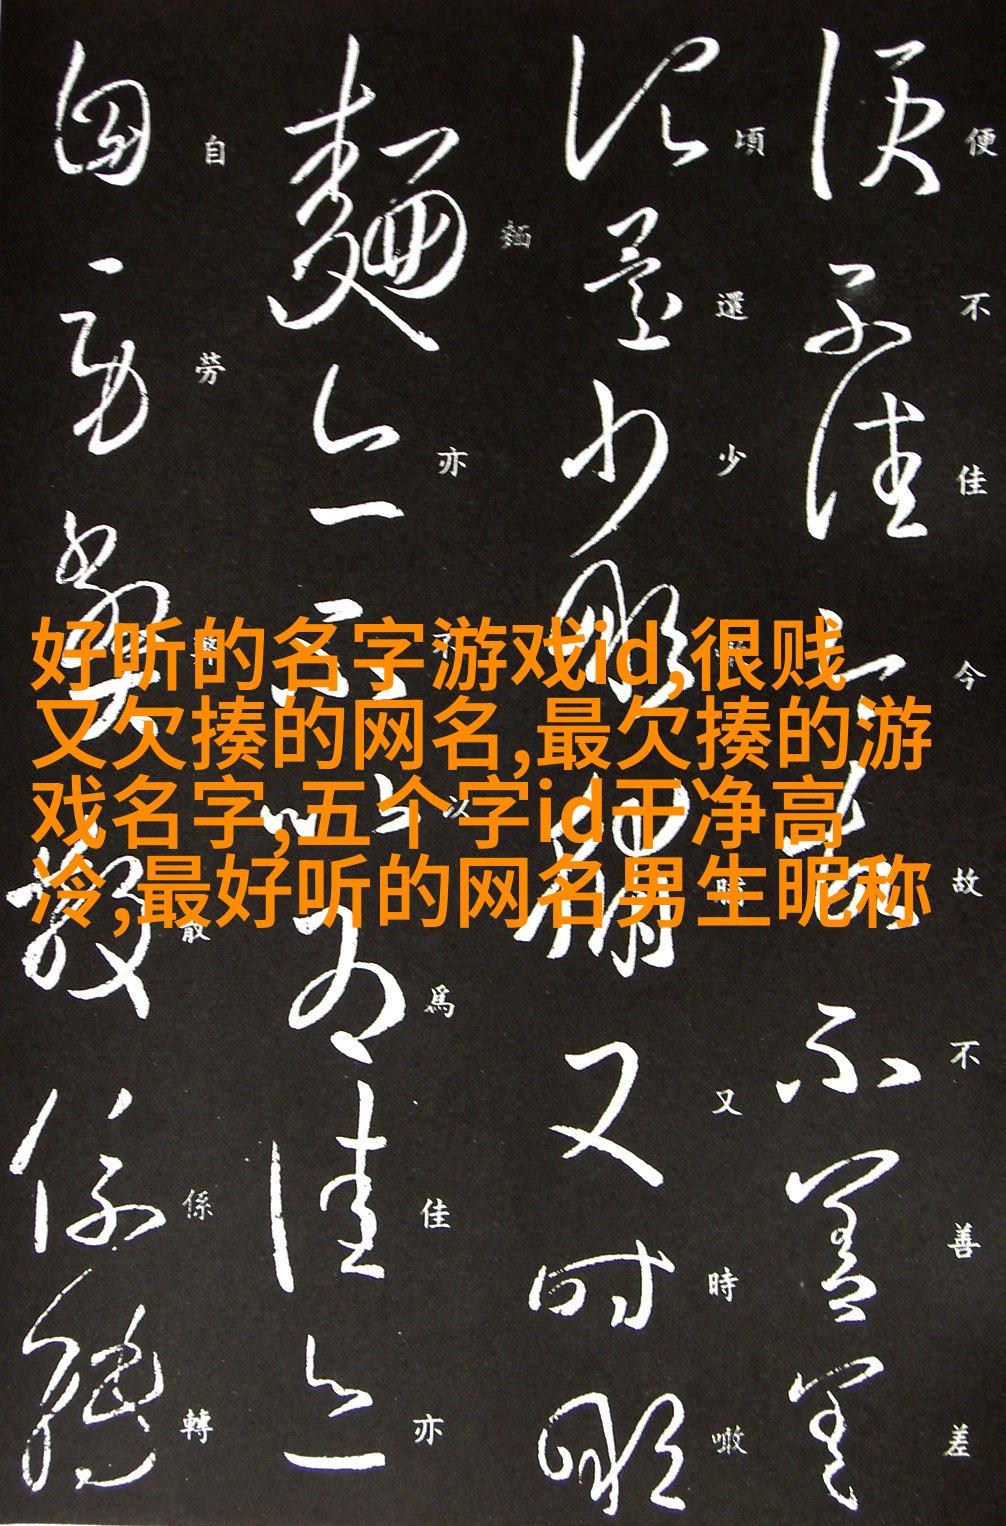 好听的名字游戏id,很贱
又欠揍的网名,最欠揍的游
戏名字,五个字id干净高
冷,最好听的网名男生昵称
便不佳今故不善差
頃還少噉脯又時噉
麵亦不以為佳亦
自勞散係轉